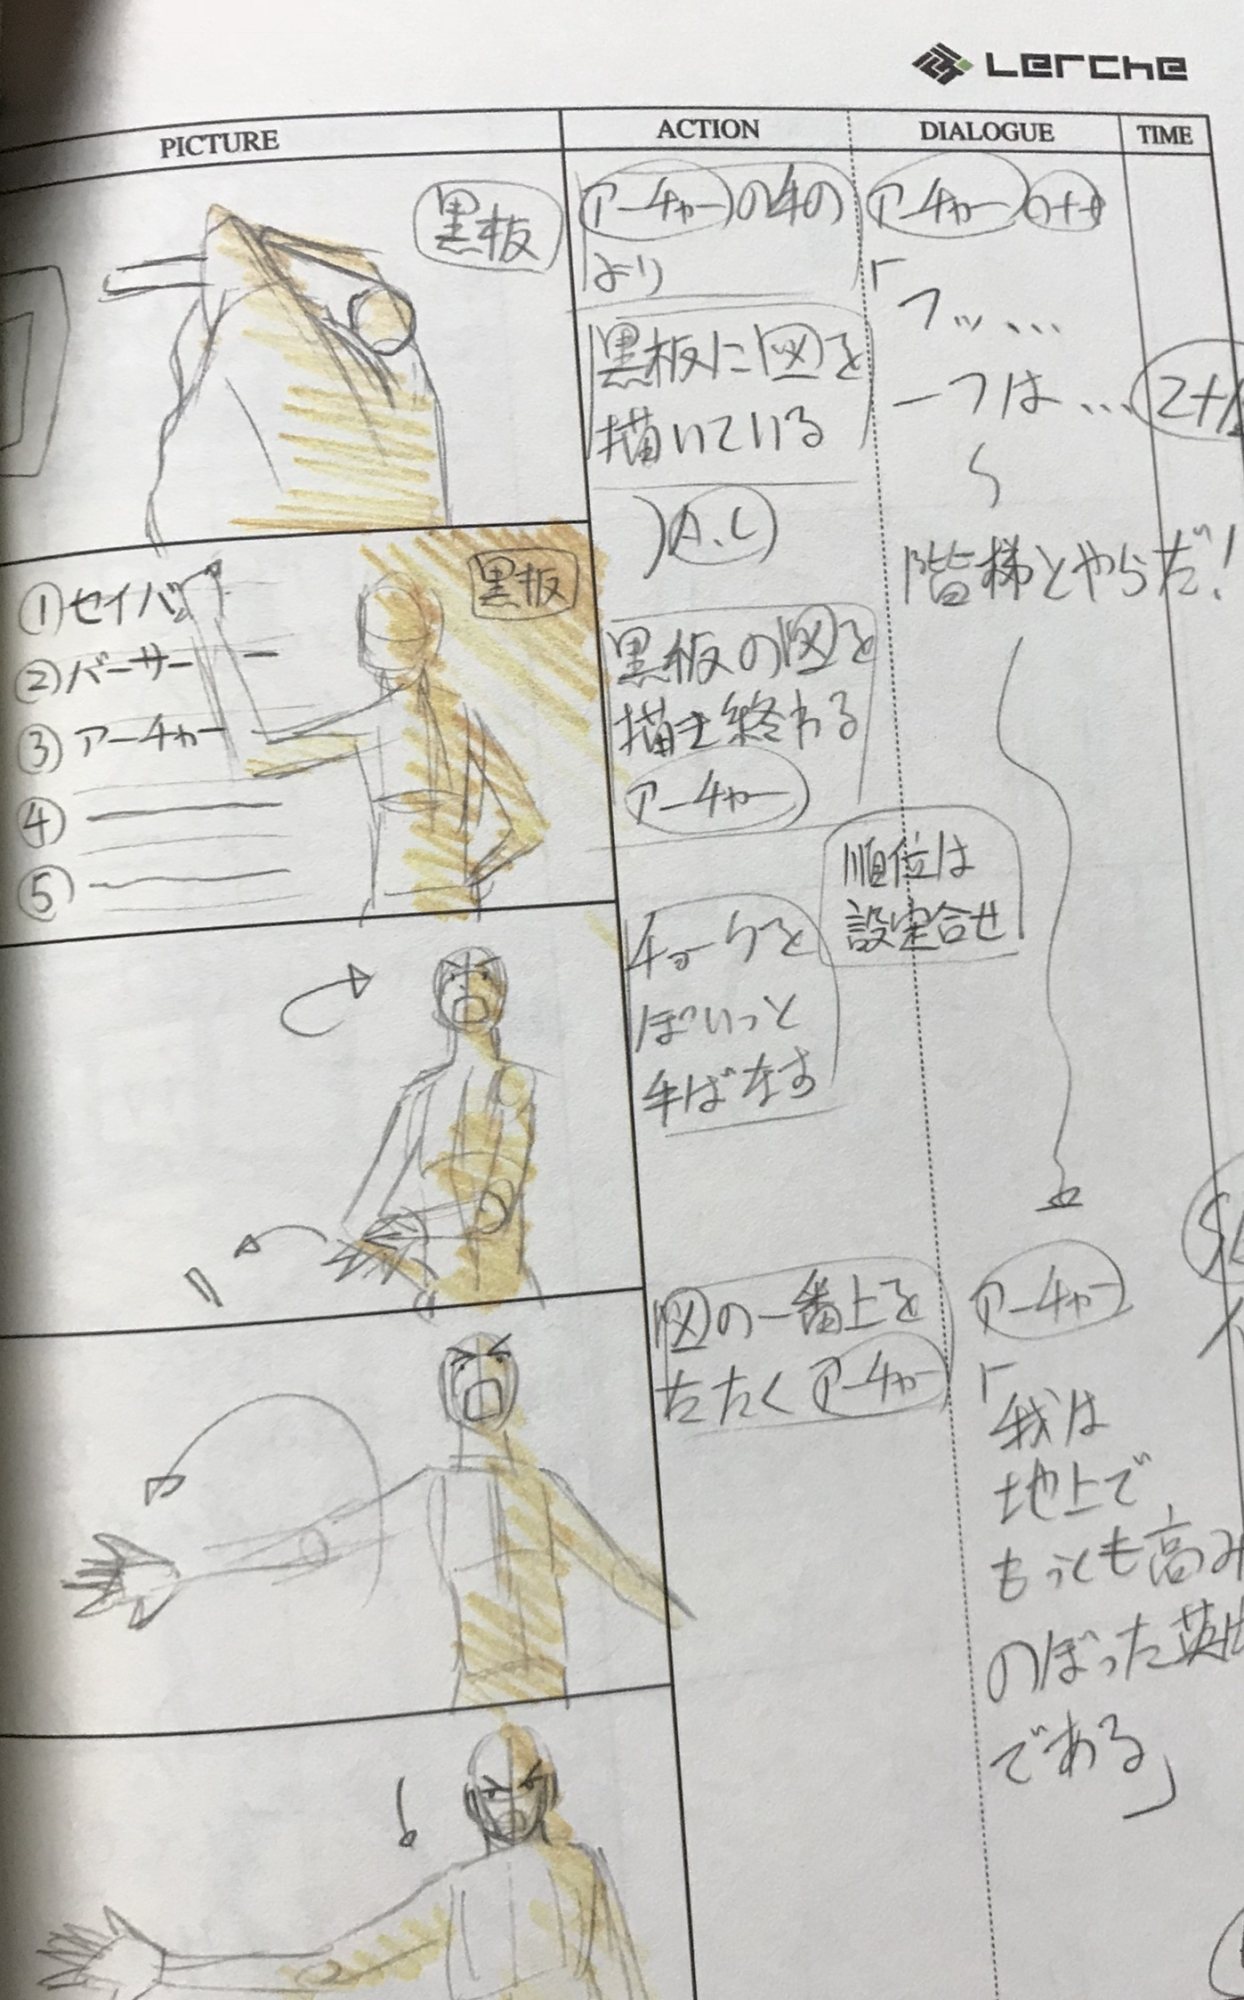 Lerche
PICTURE
ACTION
DIALOGUE
TIME
黒板
アーチャーの手の
より
黒板に図を
描いている
A.C
アーチャー
「フッ…
一つは…
階梯とやらだ！
2+
黒板
①セイバ
②バーサー
③アーチャー
④
⑤
黒板の図を
描き終わる
アーチャー
順位は
設定合せ
チョークを
ぽいっと
手ばなす
図の一番上を
たたくアーチャー
アーチャー
「我は
地上で
もっとも高み
のぼった英
である」